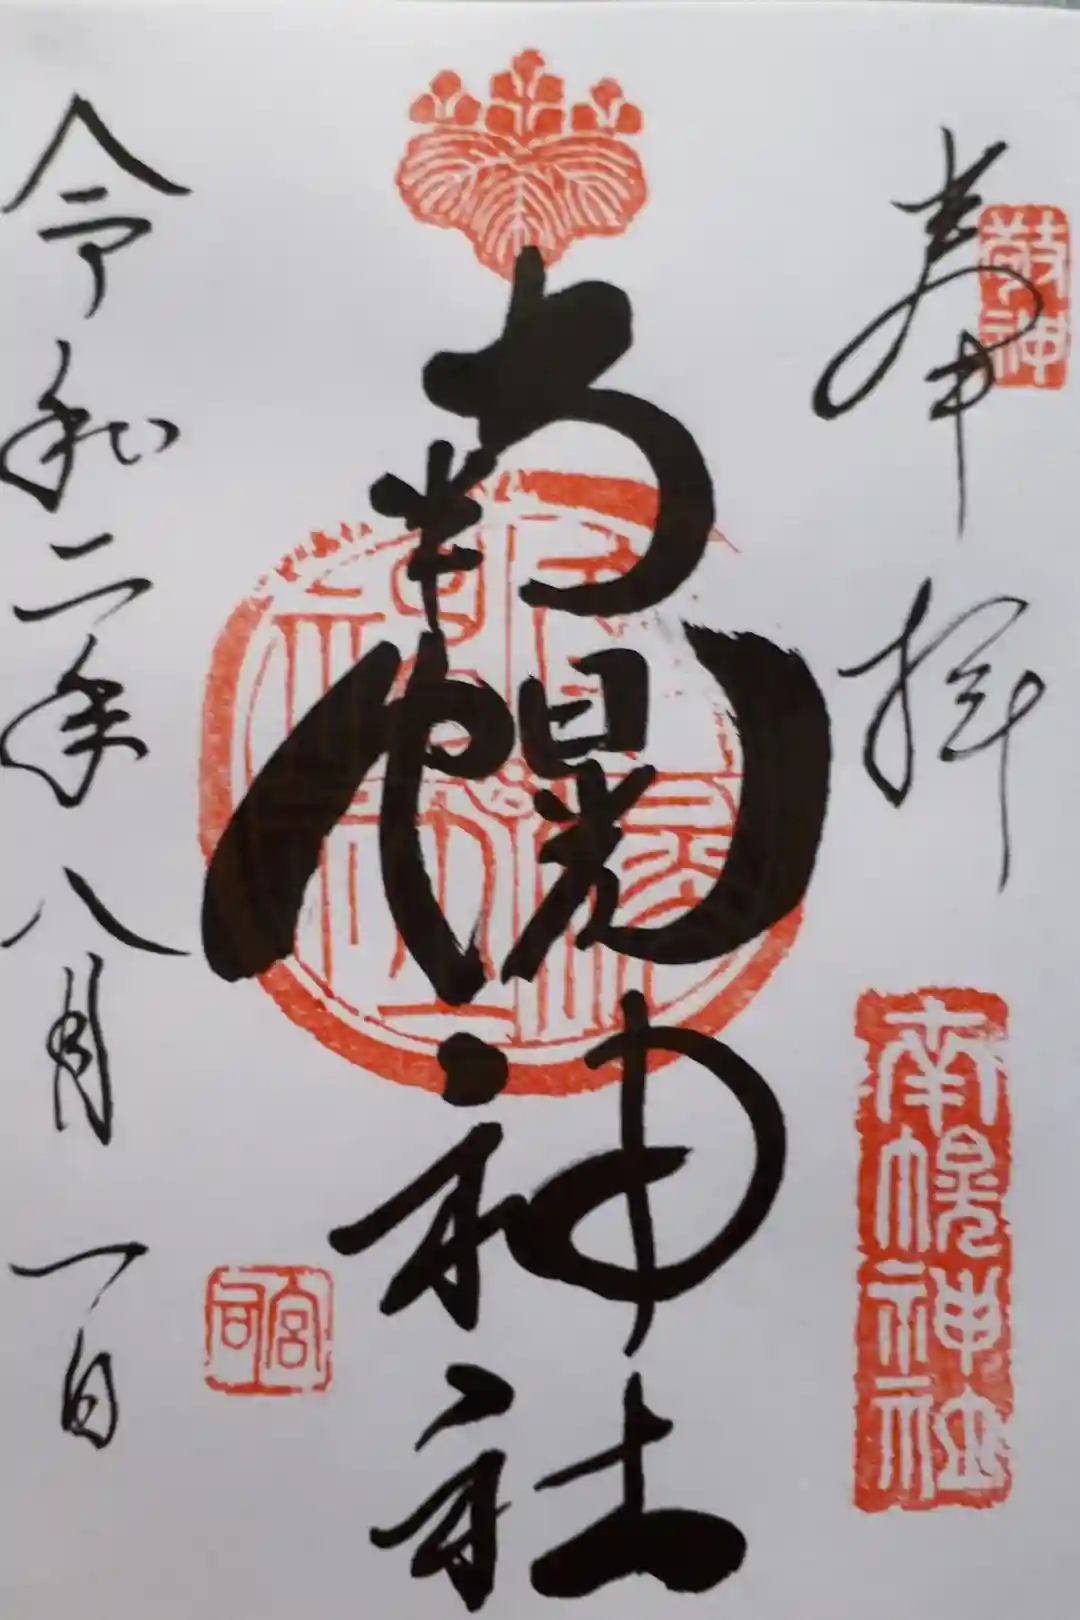 奉拝
敬神
南幌神社
南幌神社
宮司
令和二年八月一日